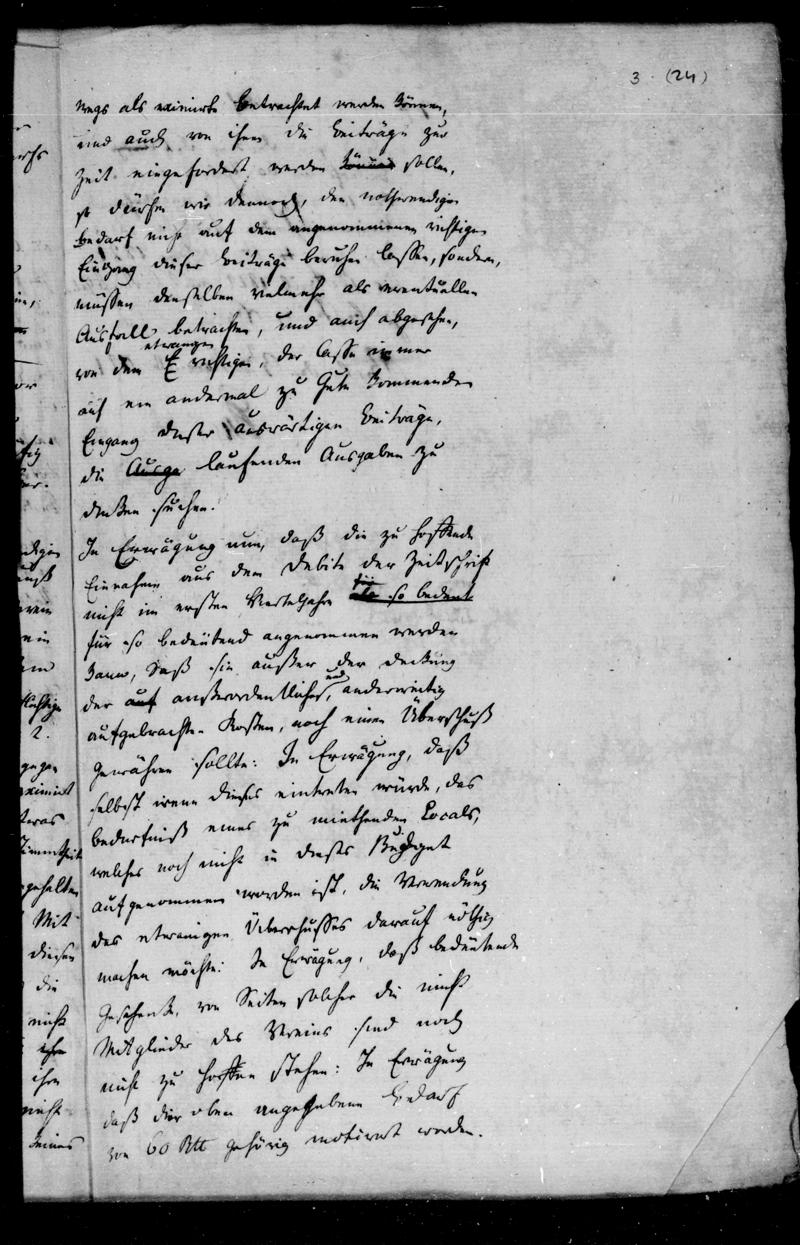 3. (24)
wegs als eximirte betrachtet werden können,
und auch von ihnen die Beiträge zur
Zeit eingefordert werden können sollen,
so dürfen wir dennoch, den nothwendigen
bedarf nicht auf dem angenommenen richtigen
Eingang dieser Beiträge beruhen lassen, sondern,
müssen denselben vielmehr als eventuellen
Ausfall betrachten, und auch abgesehen,
etwanigen
von dem E richtigen, der Casse immer
auf ein andermal zu Gute kommenden
Eingang dieser auswärtigen Beiträge,
die Ausga laufenden Ausgaben zu
decken suchen.
In Erwägung nun, daß die zu hoffende
Einnahme aus dem Debite der Zeitschrift
nicht im ersten Vierteljahre so bedeut
für so bedeutend angenommen werden
kann, daß sie außer der deckung
der auf außerordentliches, und anderweitig
aufgebrachten Kosten, noch einen Überschuß
gewähren sollte: In Erwägung, daß
selbst wenn dieses eintreten würde, das
bedürfniß eines zu miethenden Locals,
welches noch nicht in dieses Budget
aufgenommen worden ist, die Verwendung
des etwanigen Überschusses darauf nöthig
machen möchte: In Erwägung, daß bedeutende
Geschenke, von Seiten solcher die nicht
Mitglieder des Vereins sind noch
nicht zu hoffen stehen: In Erwägung
daß der oben angegebene Bedarf
von 60 Rtl gehörig motivirt worden.